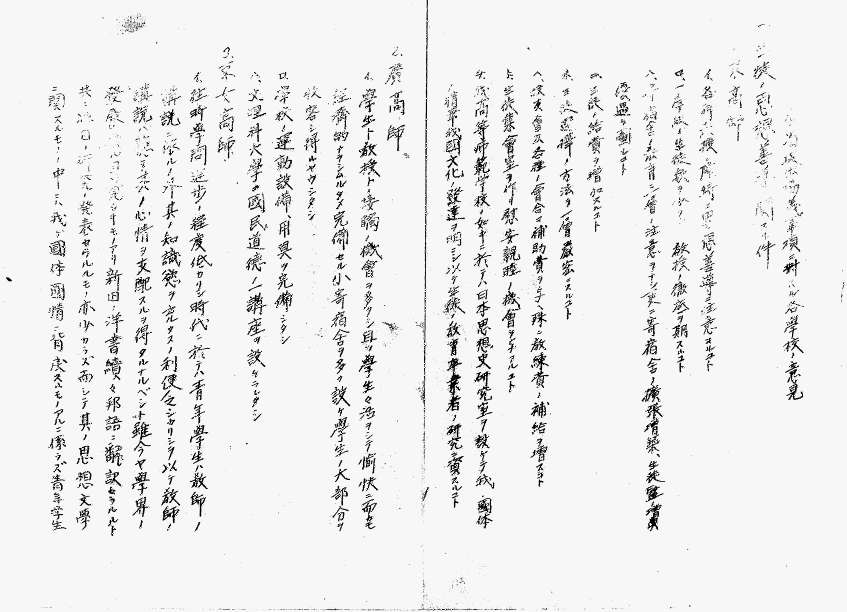 對スル各學校ノ意見
一、生徒ノ思想善導ニ關スル件
高師
イ、各科教授ノ際特ニ思想善導ニ注意スルコト
ロ、一學級ノ生徒數ヲ少ク 教授ノ徹底ヲ期スルコト
教育ニ一層ノ注意ヲナシ 寄宿舍ノ擴張增築、生徒監ノ增員
ヲ圖ルコト
ニ、生徒ノ給費ヲ增加スルコト
ホ、生徒選擇ノ方法ヲ一層嚴密ニスルコト
ヘ、校友會及各種ノ會合ニ補助費ヲ與ヘ殊ニ教練費ノ補給ヲ增スコト
ト、生徒集會室ヲ作リ慰安親睦ノ機會ヲ與フルコト
チ、我高等師範學校ノ如キニ於テハ日本思想史研究室ヲ設ケテ我ガ國体
ノ精華我國文化ノ發達ヲ明ニシ以テ生徒ノ教育卒業者ノ研究ニ資スルコト
2. 廣高師
イ、學生ト教授ト接觸ノ機會ヲ多クシ且ツ學生々活ヲシテ愉快ニ而カモ
經濟的ナラシムルタメ完備セル小寄宿舍ヲ多ク設ケ學生ノ大部分ヲ
收容シ得ルヤウシタシ
ロ、學校ノ運動設備、用具ヲ完備シタシ
ハ、文理科大學ニ國民道德ノ一講座ヲ設ケラレタシ
3. 東女高師
イ、往時學問進步ノ程度低カリシ時代ニ於テハ青年學生ハ教師ノ
講説ニ依ルノ外其ノ知識慾ヲ充タスノ利便乏シカリシヲ以テ教師ノ
講説ハ能ク其ノ心情ヲ支配スルヲ得タルナルベシト雖今ヤ學界ノ
發展ハ 新旧ノ洋書續々邦語ニ飜訳セラルルト
共ニ 研究ノ發表セラルルモノ亦少カラズ而シテ其ノ思想文學
ニ関スルモノノ中ニハ我ガ國体國情ニ背戾スルモノアルニ係ラズ青年学生